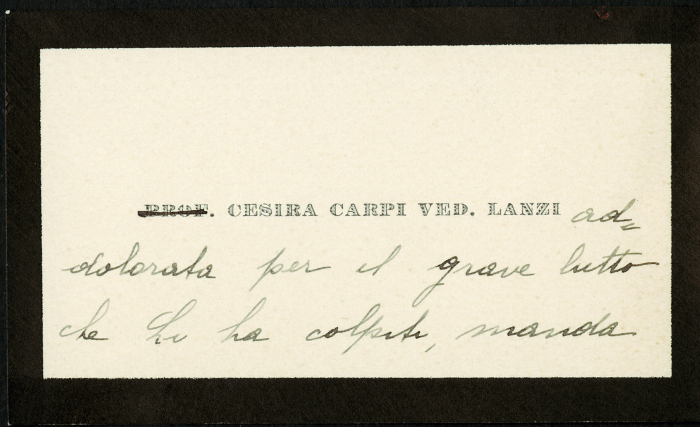 PROF. CESIRA CARPI VED. LANZI ad=
dolorata per il grave lutto
che Li ha colpiti, manda